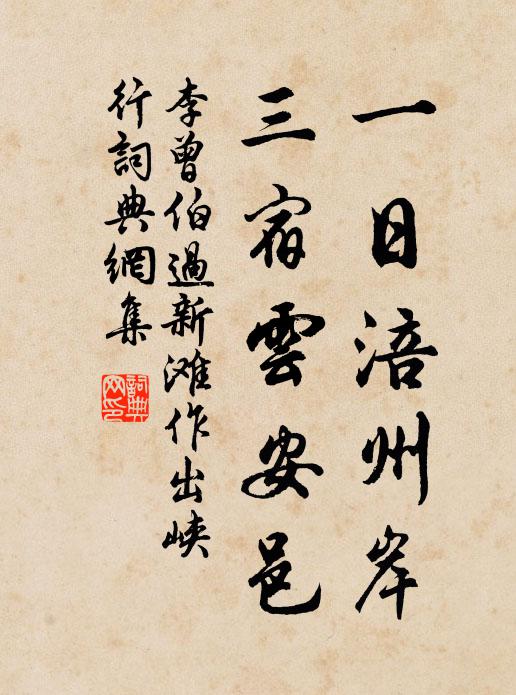 一日涪州岸
三宿雲安邑
李曾伯過新滩作出峽
行詞典網集
詞典
网印